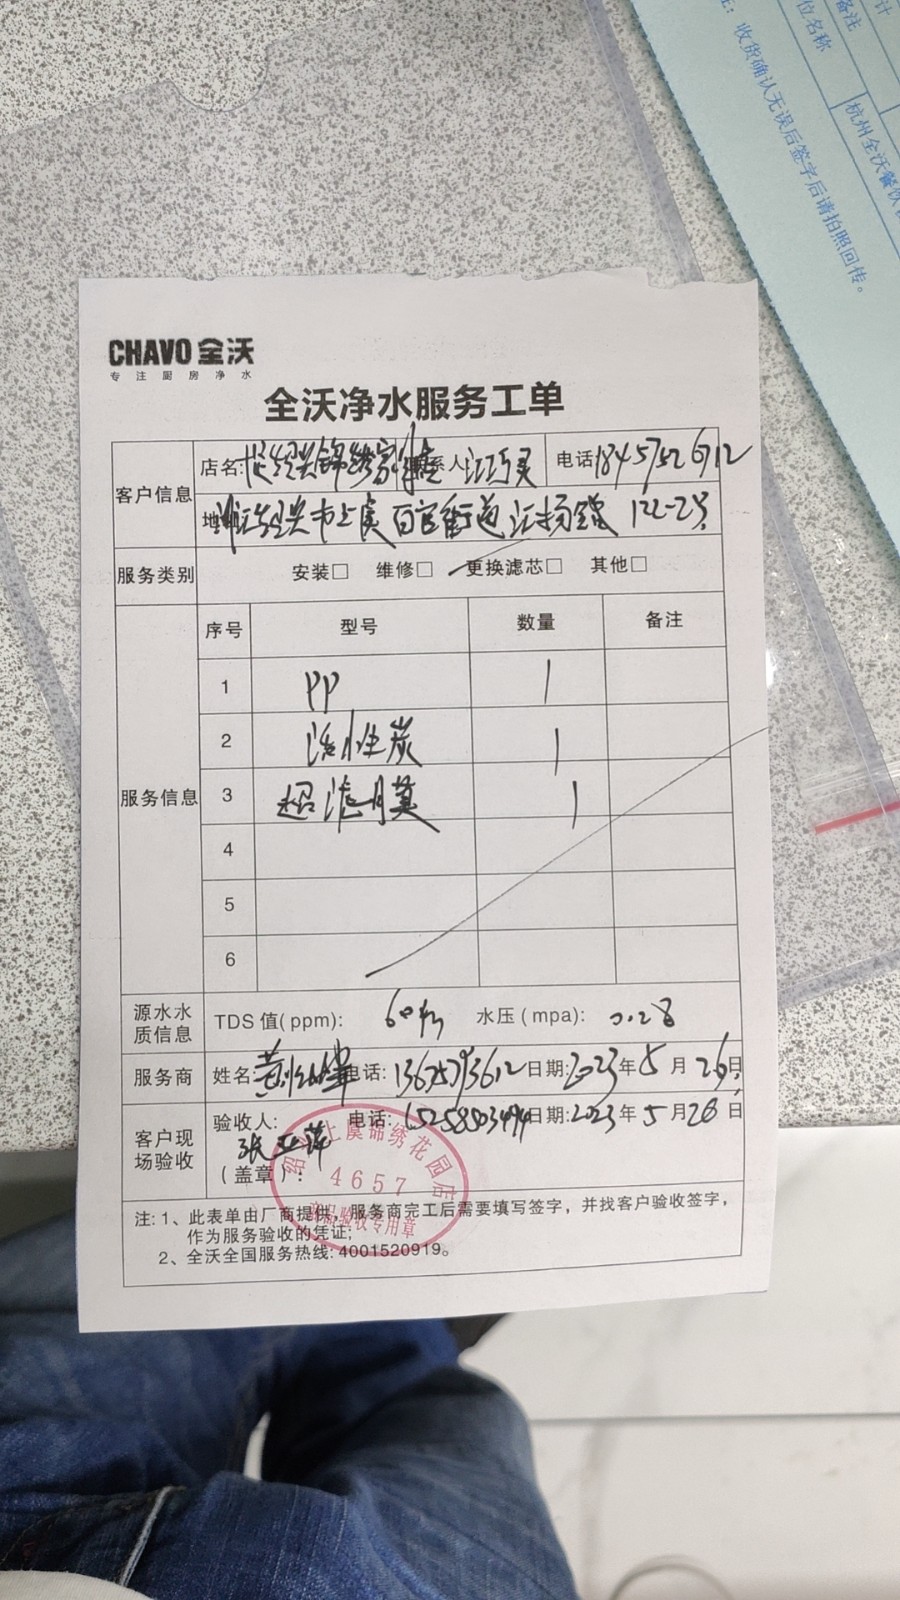 计
备注
位名称
杭州全沃餐饮
注：收货确认无误后签字后请拍照回传。
CHAVO 全沃
专注厨房净水
全沃净水服务工单
客户信息 店名: 绍兴锦绣 联系人 电话 18457526712
地址 绍兴市上虞百官街道 122-2号
服务类别 安装□ 维修□ 更换滤芯□ 其他□
服务信息
序号 型号 数量 备注
1 PP 1
2 活性炭 1
3 超滤膜 1
4
5
6
源水水质信息 TDS 值(ppm): 60 水压(mpa): 0.28
服务商 姓名: 电话: 13675793612 日期: 2023年5月26日
客户现场验收 验收人: 张亚萍 电话: 15258503494 日期: 2023年5月26日
(盖章):
绍兴上虞锦绣花园店
4657
商品验收专用章
注: 1、此表单由厂商提供，服务商完工后需要填写签字，并找客户验收签字，
作为服务验收的凭证;
2、全沃全国服务热线: 4001520919。